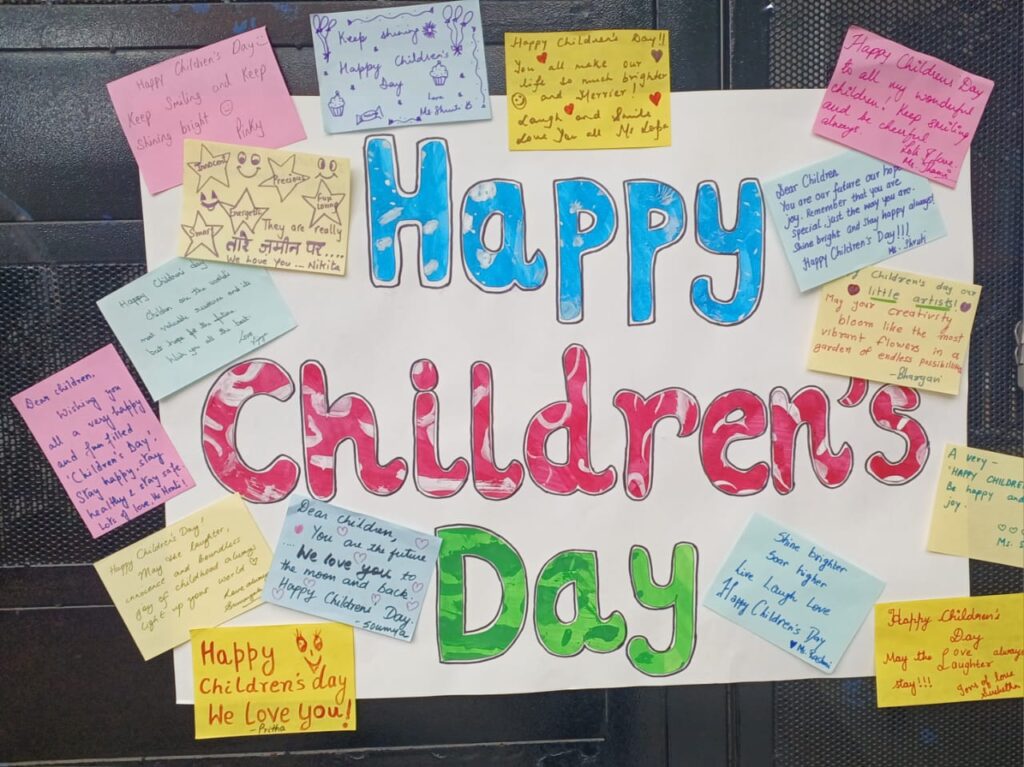 Happy
Children's
Day
Happy Children's Day
Keep Smiling and Keep
Shining bright
Pinky
Keep shining
Happy Children's
Day
Love
Happy Children's Day!!
You all make our
life so much brighter
and Merrier!
Laugh and Smile
Love You all
Happy Childrens Day
to all my wonderful
children! Keep smiling
and be cheerful
always.
Lots of love.
Innocent
Precious
Fun Loving
Energetic
Smart
They are
really
तारे जमीन पर..
We Love You ... Nikita
Dear Children
You are our future our hope
joy. Remember that you are
special just the way you are.
Shine bright and stay happy always!
Happy Children's Day!!!
Ms. Shruti
Children's day our
little artists!
May your creativity
bloom like the most
vibrant flowers in a
garden of endless possibilities
- Bhargavi
Happy Children's day
Children are the worlds
most valuable resource and its
best hope for the future
Wish you all the best.
Love
Dear children,
Wishing you
all a very happy
and fun filled
'Children's Day'.
Stay happy, stay
healthy & stay safe
Lots of love
A very -
'HAPPY CHILDREN
Be happy and
joy.
Ms. S
Happy Children's Day!
May the laughter,
innocence and boundless
joy of childhood always
light up your world
Love always
Dear Children,
... You are the future
We love you to
the moon and back.
Happy Childrens' Day.
- Soumya
Shine brighter
Soar higher
Live Laugh Love
Happy Children's Day
Happy Children's
Day
May the Love always
Laughter
stay!!!
Tons of love
Happy
Children's day
We Love You!
- Pritha